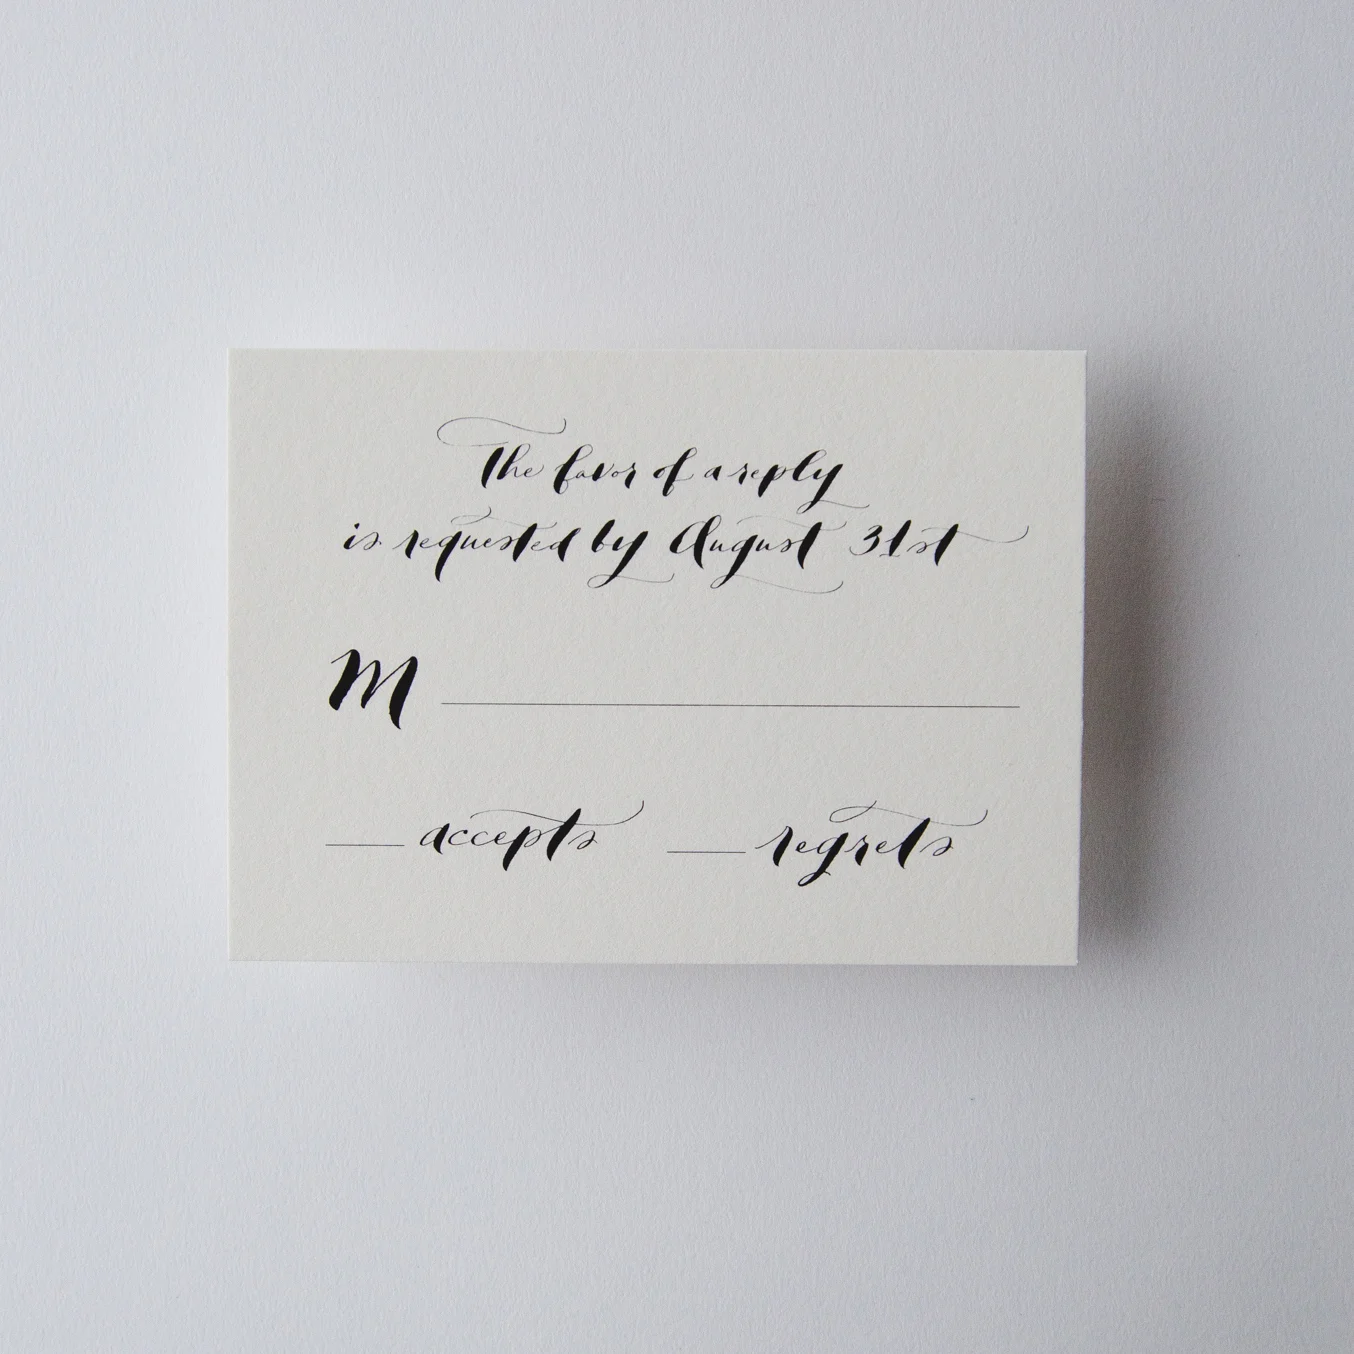 The favor of a reply
is requested by August 31st
M
accepts regrets